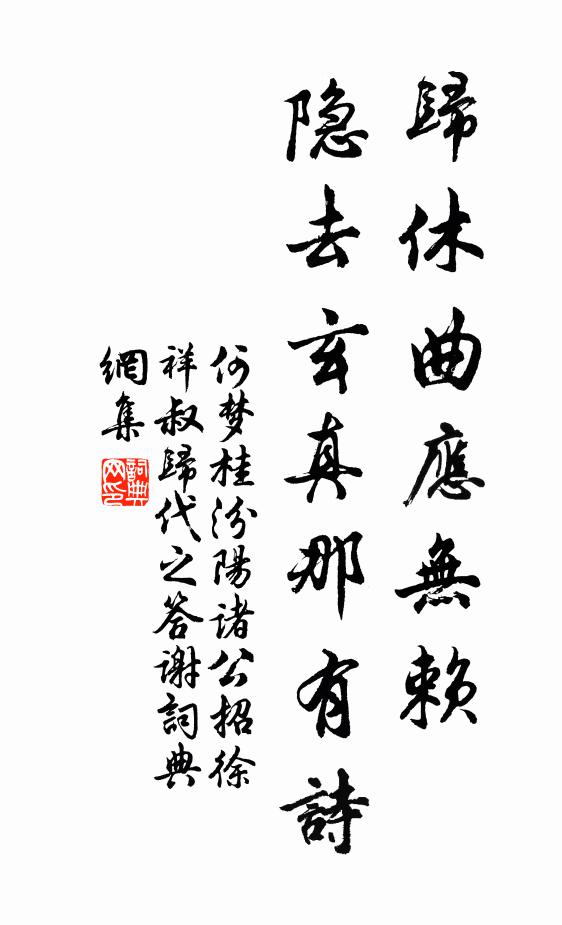 歸休曲應無賴
隐去玄真那有詩
何梦桂汾陽諸公招徐
祥叔歸代之答謝詞典
網集
詞典網印